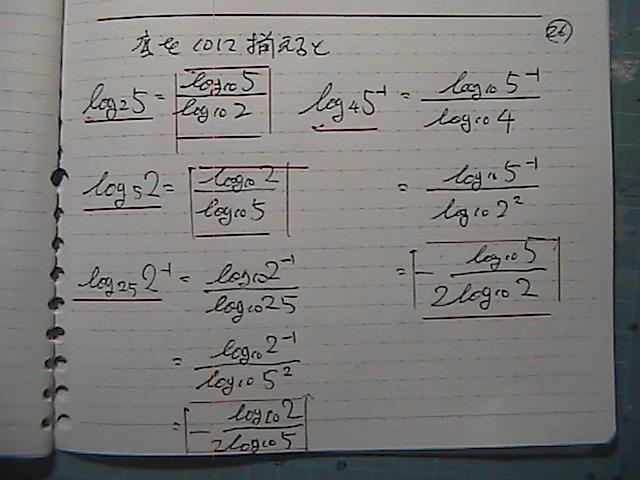 底を10に揃えると
㉖
log₂5 = log₁₀5 / log₁₀2
log₄5⁻¹ = log₁₀5⁻¹ / log₁₀4
log₅2 = log₁₀2 / log₁₀5
= log₁₀5⁻¹ / log₁₀2²
log₂₅2⁻¹ = log₁₀2⁻¹ / log₁₀25
= - log₁₀5 / 2log₁₀2
= log₁₀2⁻¹ / log₁₀5²
= - log₁₀2 / 2log₁₀5